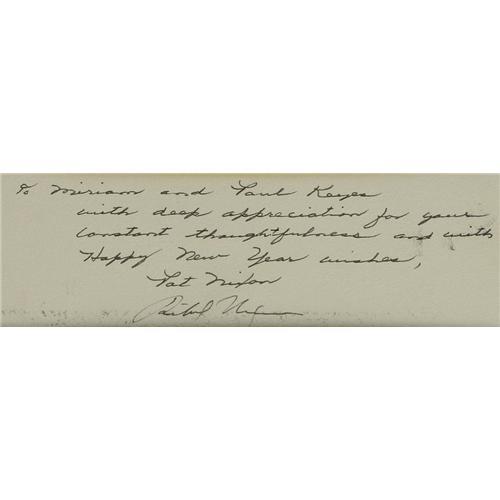 To Miriam and Paul Keyes
with deep appreciation for your
constant thoughtfulness and with
Happy New Year wishes,
Pat Nixon
Richard Nixon